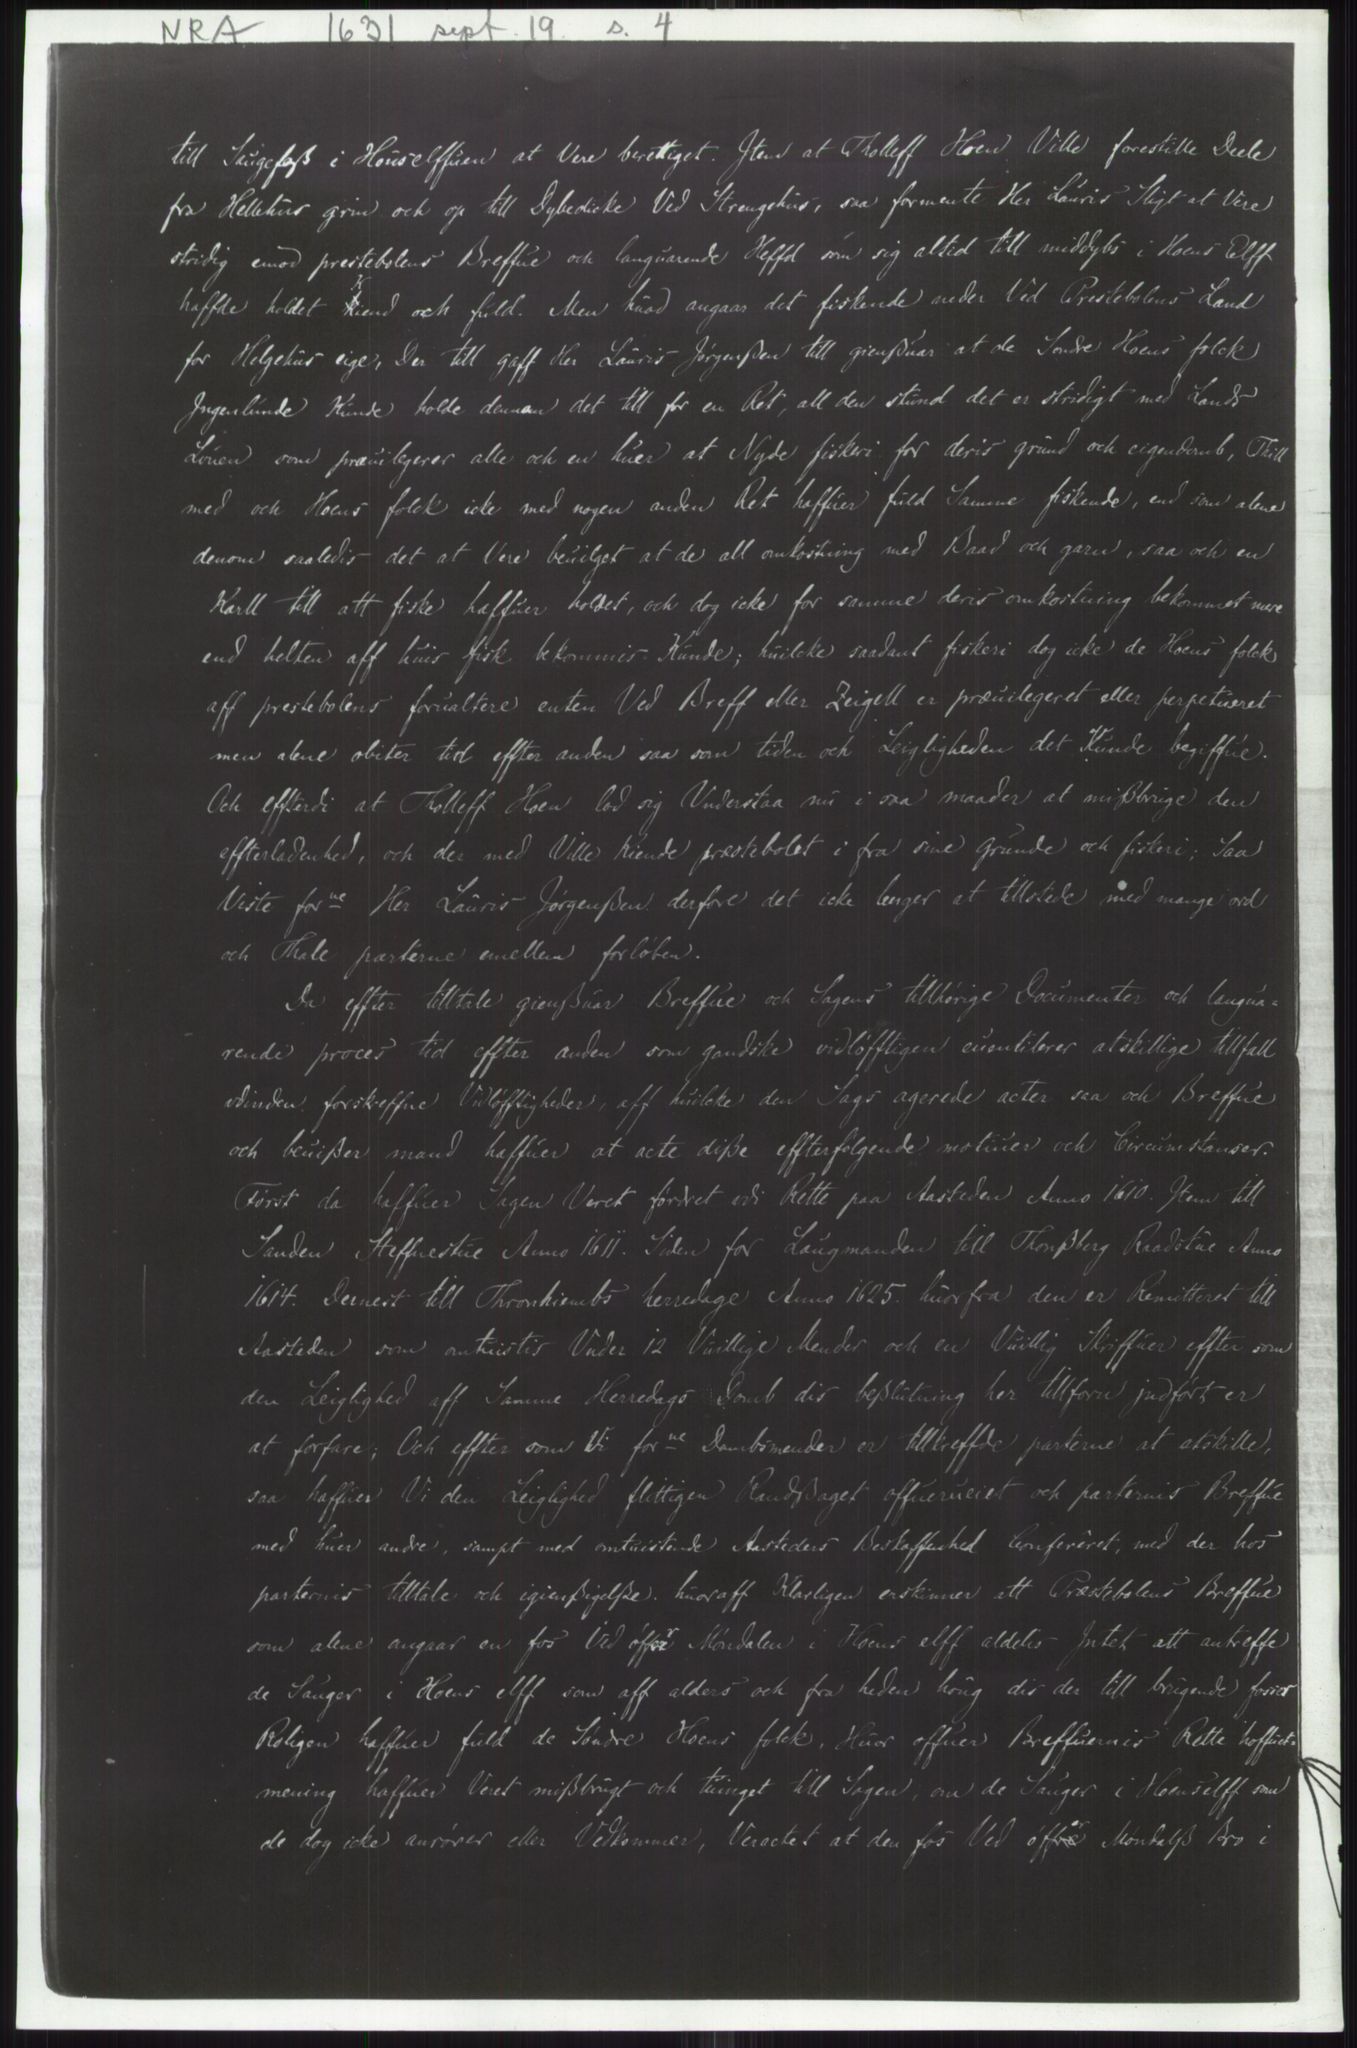 NRA 1631 sept. 19. s. 4
till Saugefoß i Houselffuen at Vere berettiget. Jtem at Tholleff Hoen Ville forestille Deele
fra Hellehus grim och op till Dybedicke Ved Strengehus, saa formente Her Lauris Sligt at Vere
stridig emod prestebolens Breffue och languarende Heffd som sig altid till middybs i Hoens Elff
haffde holdet Kiend och fuld. Men huad angaar det fiskende neder Ved Prestebolens Land
for Helgehus eige, Der till gaff Her Lauris Jørgenßen till gienßuar at de Søndre Hoens folck
Jngenlunde Kunde holde dennem det till for en Ret, all den stund det er stridigt med Lands
Louen som preuilegerer alle och en huer at Nyde fiskeri for deris grund och eigendomb, Thill
med och Hoens folck icke med nogen anden Ret haffuer fuld Samme fiskende, end som alene
denom saaledis det at Vere beuilget at de all omkostning med Baad och garn, saa och en
Karll till att fiske haffuer holdet, och dog icke for samme deris omkostning bekommet mere
end helten aff huis fisk bekommis Kunde; huilcke saadant fiskeri dog icke de Hoens folck
aff prestebolens forualtere enten Ved Breff eller Zeigell er præuilegeret eller perpetueret
men alene obiter tid effter anden saa som tiden och Leigligheden det Kunde begiffue.
Och effterdi at Tholleff Hoen lod sig Vnderstaa nu i saa maader at mißbruge den
effterladenhed, och der med Ville kiende præstebolet i fra sine grunde och fiskeri; Saa
Viste forne Her Lauris Jørgenßen derfore det icke lenger at tillstede med mange ord
och Thale parterne emellem forløben.
Da effter tilltale gienßuar Breffue och Sagens tillhørige Documenter och langua-
rende proces tid effter anden som gandske vidløfftigen euentilerer atskillige tillfall
vdinden forskreffne Vidløfftigheder, aff huilcke den Sags agerede acter saa och Breffue
och beuißer mand haffuer at acte diße effterfølgende motiuer och Circumstanser.
Først da haffuer Sagen Veret førdret vdi Rette paa Aasteden Anno 1610. Jtem till
Sanden Steffnestue Anno 1611. Siden for Laugmanden till Thonßberg Raadstue Anno
1614. Dernest till Thronhiembs herredage Anno 1625. huorfra den er Remitteret till
Aasteden som omtuistis Vnder 12 Vuillige Mender och en Vuillig Skriffuer effter som
den Leiglighed aff Samme Herredags Domb dis beßlutning her tillforn jndført er
at forfare; Och effter som Vi forne Dombsmender er tilltreffde parterne at atskille,
saa haffuer Vi den Leiglighed flittigen Randßaget offuerueiet och parternis Breffue
med huer andre, sampt med omtuistende Aasteders Beskaffenhed Confereret, med der hos
parternis tilltale och igienßigelße. huoraff Klarligen erskinner att Præstebolens Breffue
som alene angaar en fos Ved øffre Møndalen i Hoens elff aldelis Jntet att antreffe
de Sauger i Hoens elff som aff alders och fra heden houg dis der till brugende foser
Roligen haffuer fuld de Søndre Hoens folck. Huor offuer Breffuernis Rette hoffuet-
mening haffuer Veret mißbrugt och tuinget till Sagen, om de Sauger i Hoenselff som
de dog icke anrører eller Vedkommer, Veractet at den fos Ved øffre Møndalß Bro i